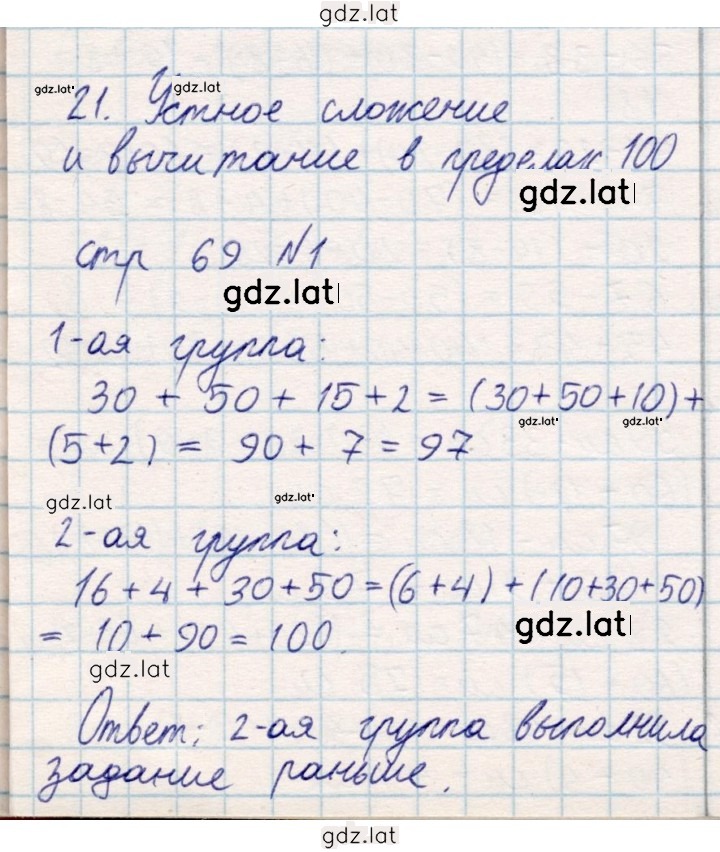 gdz.lat
gdz.lat gdz.lat
21. Устное сложение
и вычитание в пределах 100
gdz.lat
стр 69 №1
gdz.lat
1-ая группа:
30 + 50 + 15 + 2 = (30+50+10) +
gdz.lat gdz.lat
(5+2) = 90 + 7 = 97
gdz.lat gdz.lat
2-ая группа:
16 + 4 + 30 + 50 = (6 + 4) + (10+30+50)
= 10 + 90 = 100.
gdz.lat
gdz.lat
Ответ: 2-ая группа выполнила
задание раньше.
gdz.lat